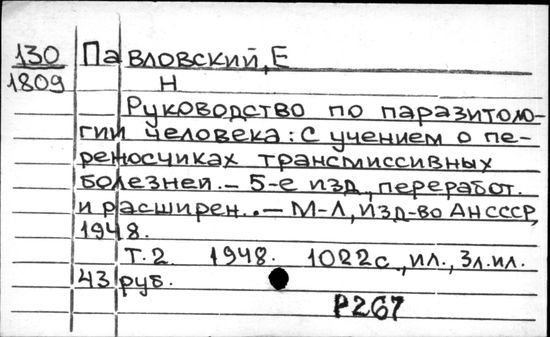 130 Павловский, Е
1809 Н
Руководство по паразитоло-
гии человека: С учением о пе-
реносчиках трансмиссивных
болезней. – 5-е изд., переработ.
и расширен.. – М-Л, Изд-во АНСССР,
1948.
Т.2 1948. 1022с., ил., 3л.ил.
43 руб.
Р267